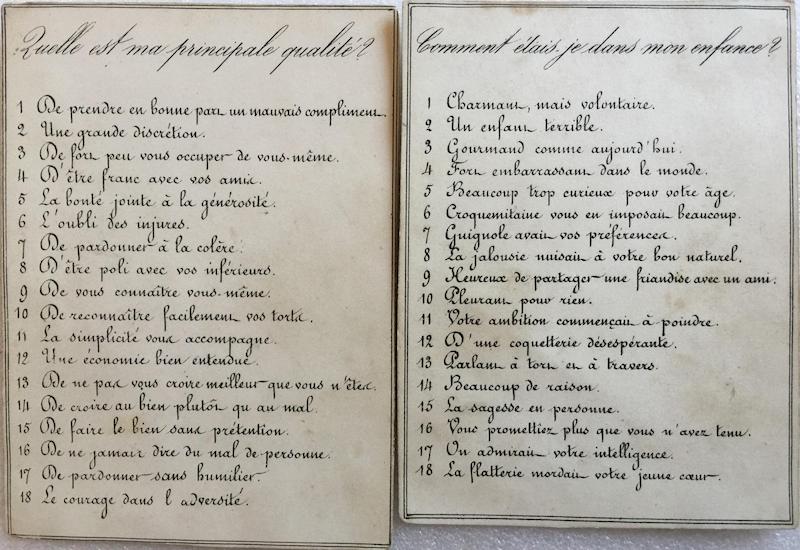 Quelle est ma principale qualité?
1 De prendre en bonne part un mauvais compliment.
2 Une grande discrétion.
3 De fort peu vous occuper de vous-même.
4 D'être franc avec vos amis.
5 La bonté jointe à la générosité.
6 L'oubli des injures.
7 De pardonner à la colère.
8 D'être poli avec vos inférieurs.
9 De vous connaître vous-même.
10 De reconnaître facilement vos torts.
11 La simplicité vous accompagne.
12 Une économie bien entendue.
13 De ne pas vous croire meilleur que vous n'êtes.
14 De croire au bien plutôt qu au mal.
15 De faire le bien sans prétention.
16 De ne jamais dire du mal de personne.
17 De pardonner sans humilier.
18 Le courage dans l adversité.
Comment étais-je dans mon enfance?
1 Charmant, mais volontaire.
2 Un enfant terrible.
3 Gourmand comme aujourd'hui.
4 Fort embarrassant dans le monde.
5 Beaucoup trop curieux pour votre âge.
6 Croquemitaine vous en imposait beaucoup.
7 Guignole avait vos préférences.
8 La jalousie nuisait à votre bon naturel.
9 Heureux de partager une friandise avec un ami.
10 Pleurant pour rien.
11 Votre ambition commençait à poindre.
12 D'une coquetterie désespérante.
13 Parlant à tort et à travers.
14 Beaucoup de raison.
15 La sagesse en personne.
16 Vous promettiez plus que vous n'avez tenu.
17 On admirait votre intelligence.
18 La flatterie mordait votre jeune cœur.